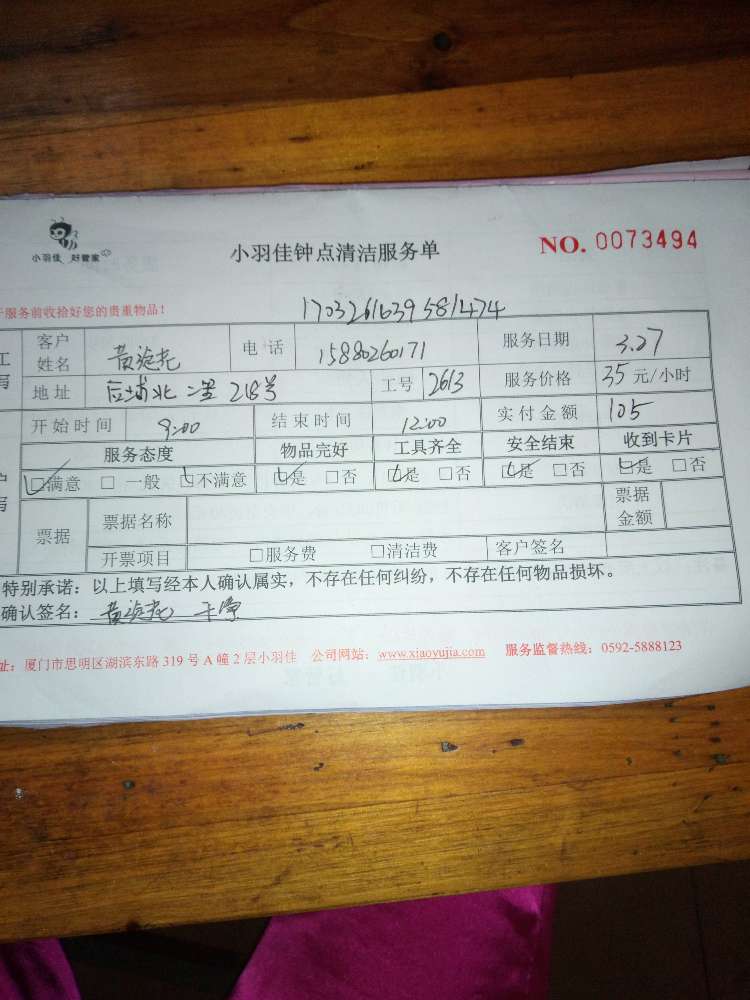 小羽佳 好管家
小羽佳钟点清洁服务单
NO. 0073494
服务前收拾好您的贵重物品!
1703261639581474
客户姓名 黄 电话 15880260171 服务日期 3.27
地址 后埔北二里218号 工号 2613 服务价格 35 元/小时
开始时间 9:00 结束时间 12:00 实付金额 105
服务态度 物品完好 工具齐全 安全结束 收到卡片
☑满意 □一般 □不满意 ☑是 □否 ☑是 □否 ☑是 □否 ☑是 □否
票据 票据名称 票据金额
开票项目 □服务费 □清洁费 客户签名
特别承诺:以上填写经本人确认属实,不存在任何纠纷,不存在任何物品损坏。
确认签名:黄 干净
址:厦门市思明区湖滨东路 319 号 A 幢 2 层小羽佳 公司网站:www.xiaoyujia.com 服务监督热线:0592-5888123